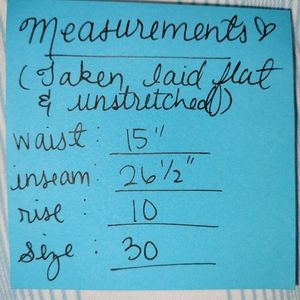 Measurements ♡
(Taken laid flat
& unstretched)
waist: 15"
inseam: 26 1/2"
rise: 10
size: 30